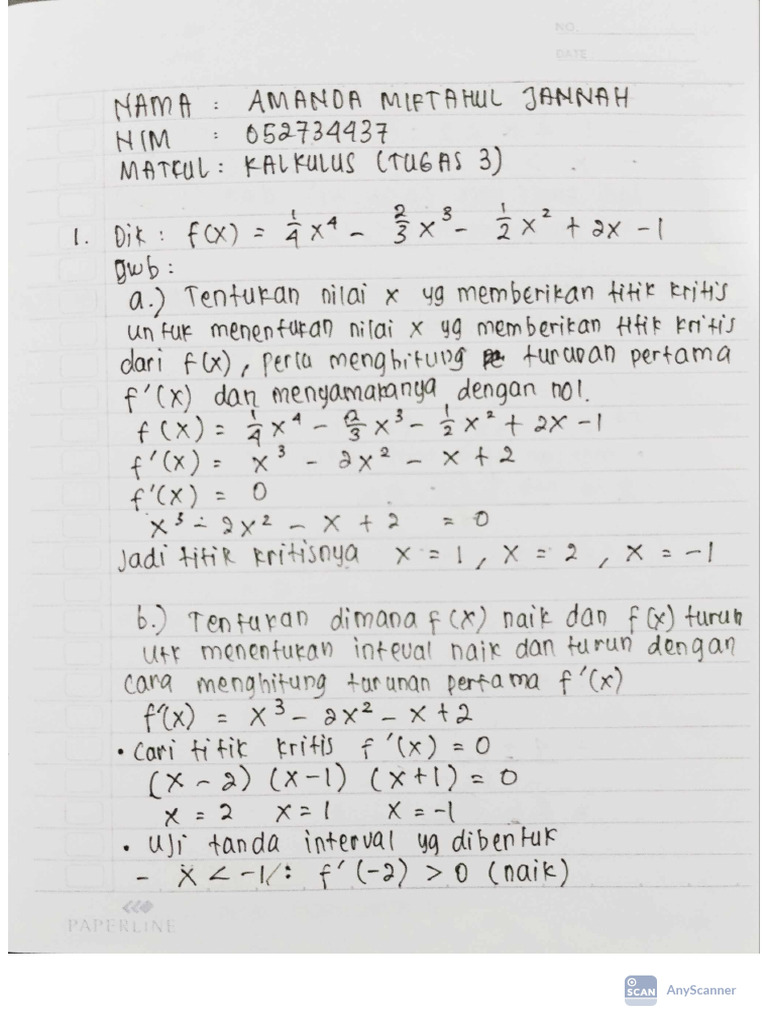 NO.
DATE
NAMA : AMANDA MIFTAHUL JANNAH
NIM : 052734437
MATKUL : KALKULUS (TUGAS 3)
1. Dik : f(x) = 1/4 x⁴ - 2/3 x³ - 1/2 x² + 2x - 1
Jwb :
a.) Tentukan nilai x yg memberikan titik kritis
untuk menentukan nilai x yg memberikan titik kritis
dari f(x), perlu menghitung turunan pertama
f'(x) dan menyamakanya dengan nol.
f(x) = 1/4 x⁴ - 2/3 x³ - 1/2 x² + 2x - 1
f'(x) = x³ - 2x² - x + 2
f'(x) = 0
x³ - 2x² - x + 2 = 0
Jadi titik kritisnya x = 1, x = 2, x = -1
b.) Tentukan dimana f(x) naik dan f(x) turun
utk menentukan inteval naik dan turun dengan
cara menghitung turunan pertama f'(x)
f'(x) = x³ - 2x² - x + 2
• Cari titik kritis f'(x) = 0
(x - 2) (x - 1) (x + 1) = 0
x = 2 x = 1 x = -1
• Uji tanda interval yg dibentuk
- x < -1/: f'(-2) > 0 (naik)
PAPERLINE
SCAN AnyScanner